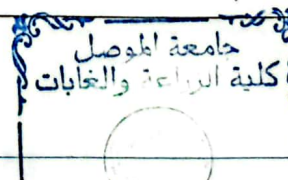 جامعة الموصل
كلية الزراعة والغابات